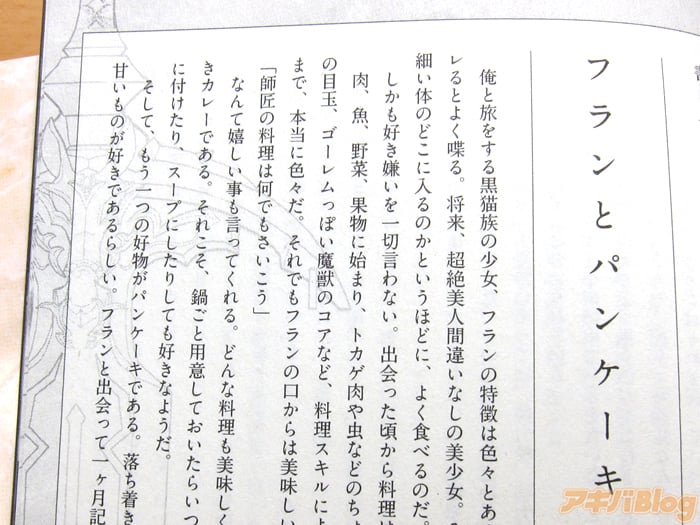 フランとパンケーキ
俺と旅をする黒猫族の少女、フランの特徴は色々とあ
レるとよく喋る。将来、超絶美人間違いなしの美少女。
細い体のどこに入るのかというほどに、よく食べるのだ。
しかも好き嫌いを一切言わない。出会った頃から料理は
肉、魚、野菜、果物に始まり、トカゲ肉や虫などのちょ
の目玉、ゴーレムっぽい魔獣のコアなど、料理スキルによ
まで、本当に色々だ。それでもフランの口からは美味しい
「師匠の料理は何でもさいこう」
なんて嬉しい事も言ってくれる。どんな料理も美味しく
きカレーである。それこそ、鍋ごと用意しておいたらいつ
に付けたり、スープにしたりしても好きなようだ。
そして、もう一つの好物がパンケーキである。落ち着き
甘いものが好きであるらしい。フランと出会って一ヶ月記
アキバBlog